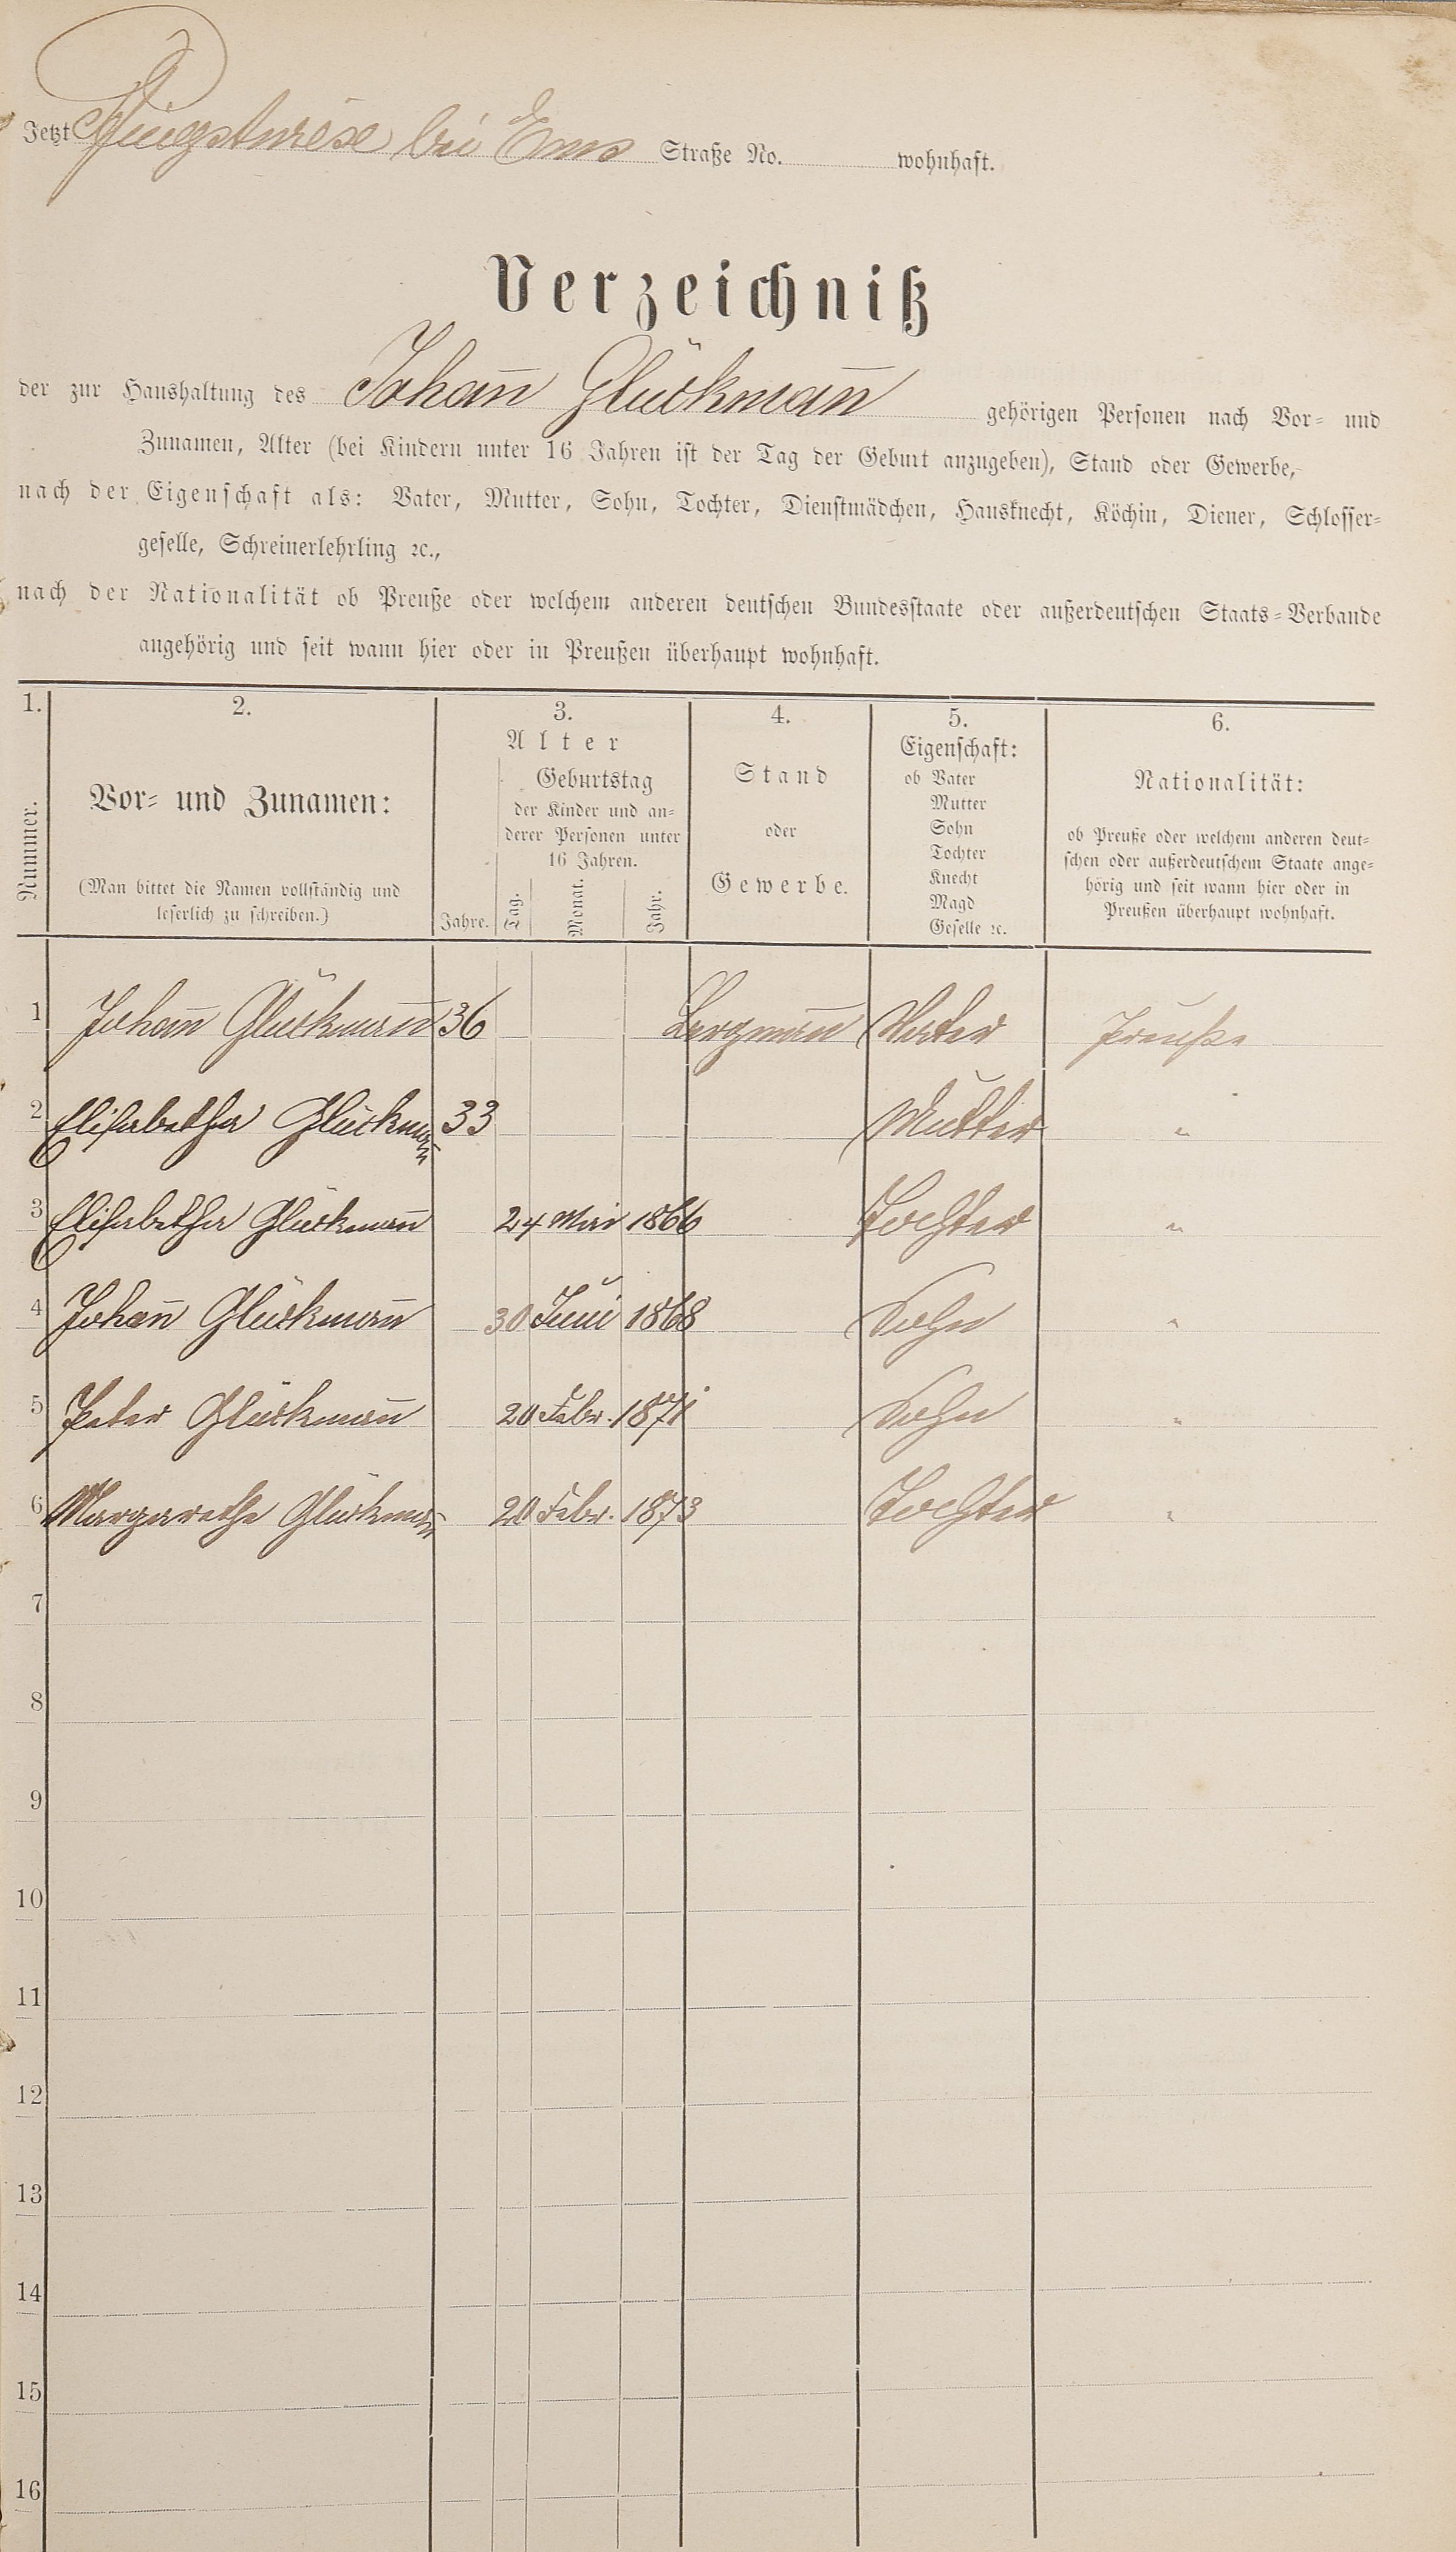 Jetzt Pfingstwiese bei Ems Straße No. wohnhaft.
Verzeichniß
der zur Haushaltung des Johan̄ Glückman̄ gehörigen Personen nach Vor- und
Zunamen, Alter (bei Kindern unter 16 Jahren ist der Tag der Geburt anzugeben), Stand oder Gewerbe,
nach der Eigenschaft als: Vater, Mutter, Sohn, Tochter, Dienstmädchen, Hausknecht, Köchin, Diener, Schlosser-
geselle, Schreinerlehrling ꝛc.,
nach der Nationalität ob Preuße oder welchem anderen deutschen Bundesstaate oder außerdeutschen Staats-Verbande
angehörig und seit wann hier oder in Preußen überhaupt wohnhaft.
1.
Nummer.
2.
Vor- und Zunamen:
(Man bittet die Namen vollständig und
leserlich zu schreiben.)
3.
Alter
Jahre.
Geburtstag
der Kinder und an-
derer Personen unter
16 Jahren.
Tag. Monat. Jahr.
4.
Stand
oder
Gewerbe.
5.
Eigenschaft:
ob Vater
Mutter
Sohn
Tochter
Knecht
Magd
Geselle ꝛc.
6.
Nationalität:
ob Preuße oder welchem anderen deut-
schen oder außerdeutschem Staate ange-
hörig und seit wann hier oder in
Preußen überhaupt wohnhaft.
1 Johan̄ Glückman̄ 36 Bergman̄ Vater Preuße
2 Elisabetha Glückman̄ 33 Mutter "
3 Elisabetha Glückman̄ 24 Mai 1866 Tochter "
4 Johan̄ Glückman̄ 30 Juni 1868 Sohn "
5 Peter Glückman̄ 20 Febr. 1871 Sohn "
6 Margarethe Glückman̄ 20 Febr. 1873 Tochter "
7
8
9
10
11
12
13
14
15
16